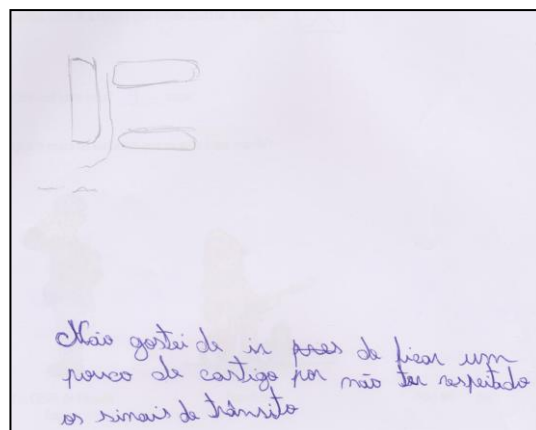 Não gostei de ir pres de ficar um
pouco de castigo por não ter respeitado
os sinais de trânsito